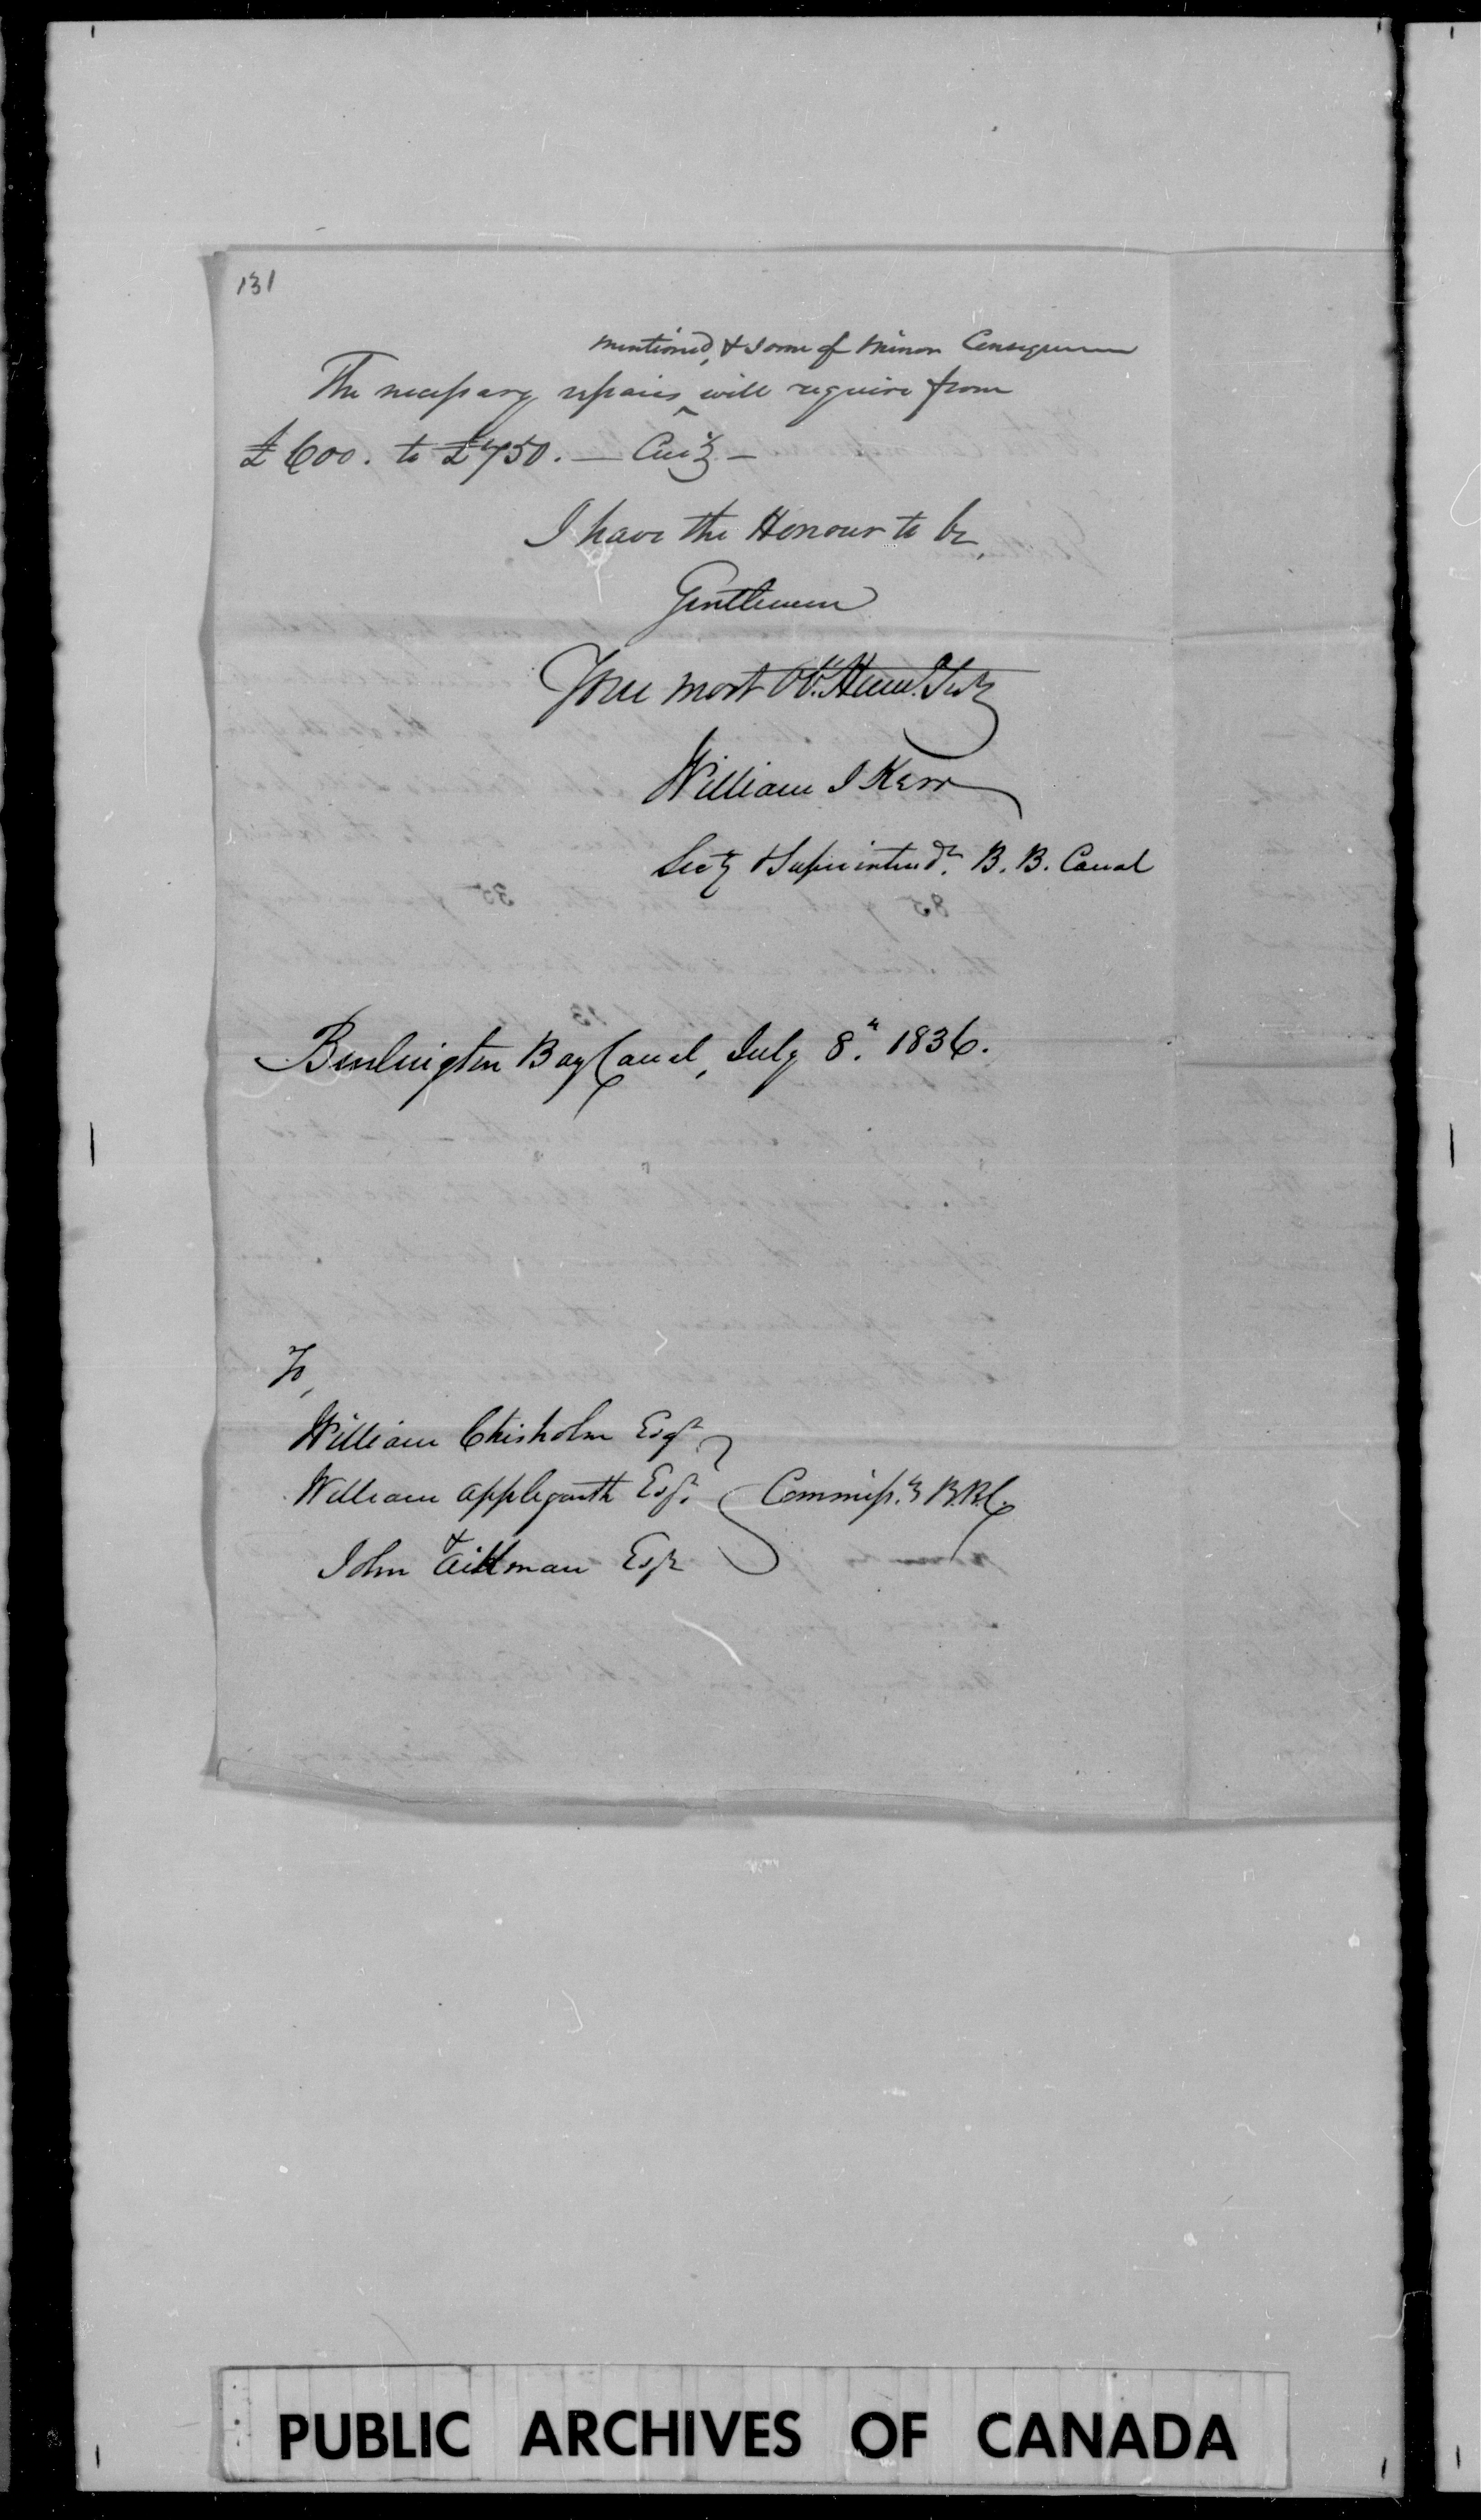 131
mentioned, & some of minor Consequence
The necessary repairs ^ will require from
£600. to £750. — Cur.y —
I have the Honour to be,
Gentlemen
Your most Ob.t Hum. Serv.t
William J Kerr
Sec.y & Superintend.t B. B. Canal
Burlington Bay Canal, July 8.th 1836.
To,
William Chisholm Esqr
William Applegarth Esqr. Commiss.rs B.B.C.
&
John Aikman Esqr
PUBLIC ARCHIVES OF CANADA